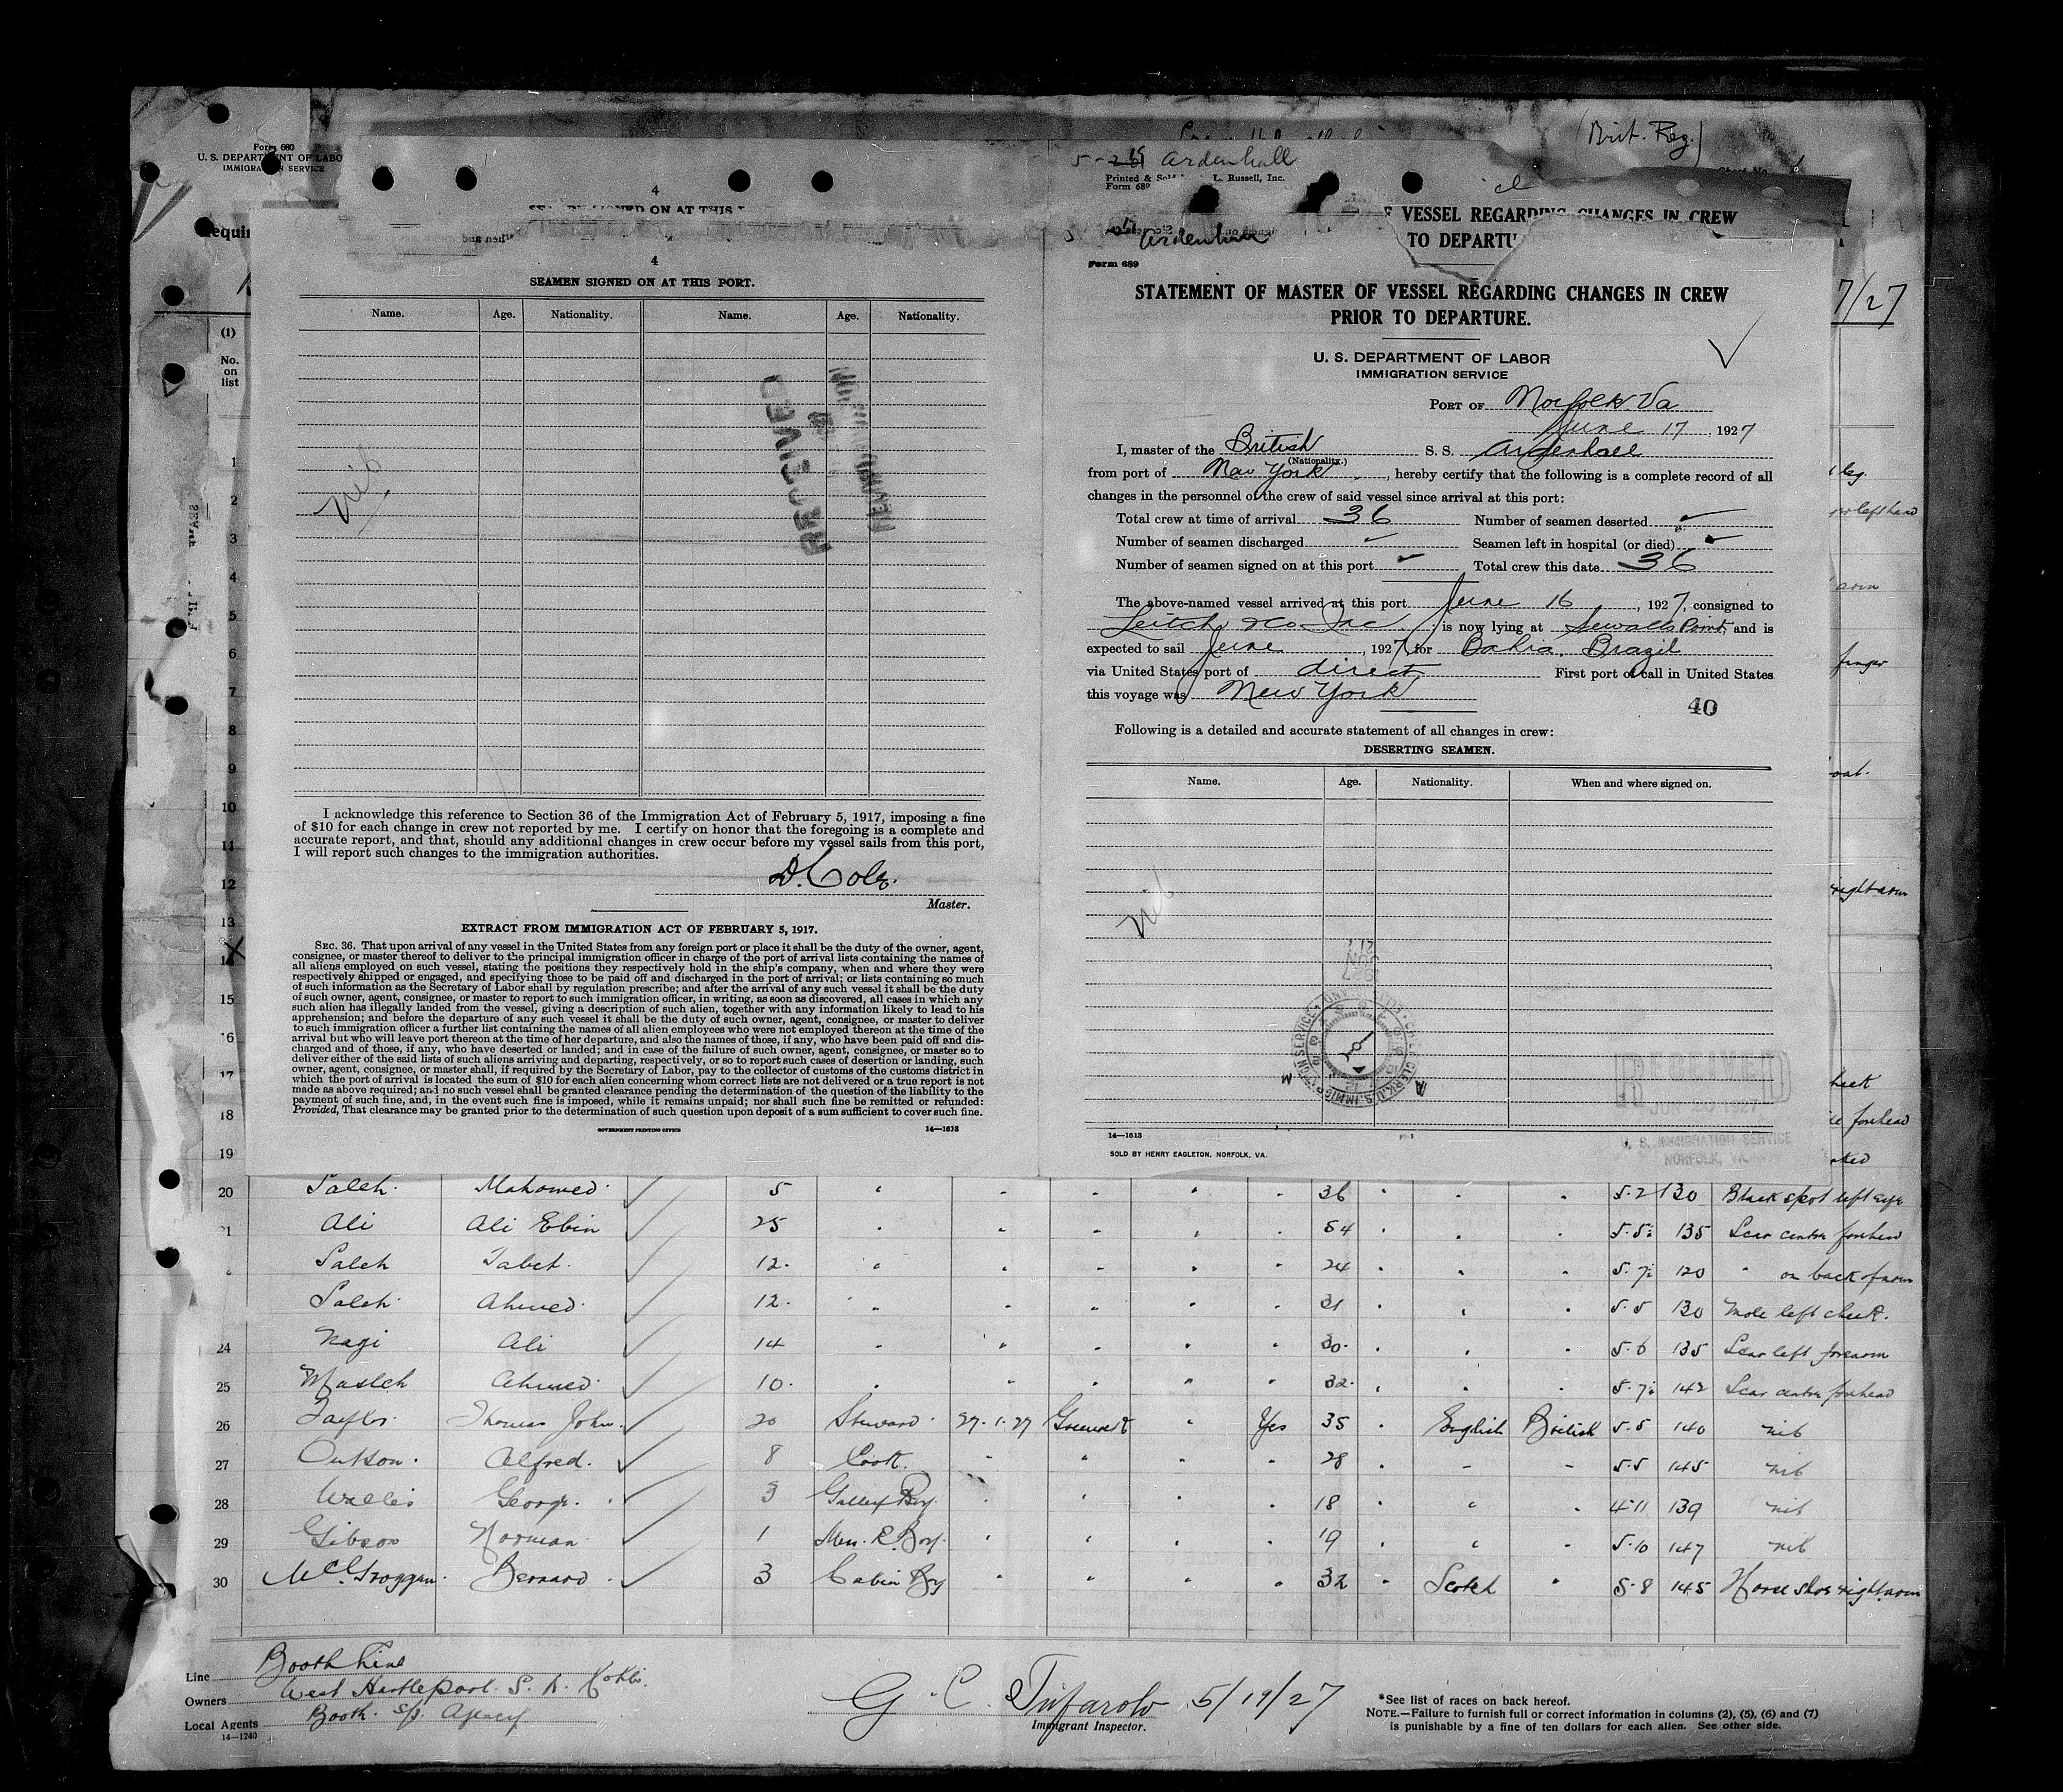 (Brit. Reg.)
Form 680
U. S. DEPARTMENT OF LABO
IMMIGRATION SERVICE
5- Ardenhall
Printed & Sol L. Russell, Inc.
Form 689
4
VESSEL REGARDING CHANGES IN CREW
TO DEPARTU
Ardenhall
equir
7/27
(1)
No.
on
list
4
SEAMEN SIGNED ON AT THIS PORT.
Name. Age. Nationality. Name. Age. Nationality.
RECEIVED
I acknowledge this reference to Section 36 of the Immigration Act of February 5, 1917, imposing a fine
of $10 for each change in crew not reported by me. I certify on honor that the foregoing is a complete and
accurate report, and that, should any additional changes in crew occur before my vessel sails from this port,
I will report such changes to the immigration authorities.
D. Cole.
Master.
EXTRACT FROM IMMIGRATION ACT OF FEBRUARY 5, 1917.
SEC. 36. That upon arrival of any vessel in the United States from any foreign port or place it shall be the duty of the owner, agent,
consignee, or master thereof to deliver to the principal immigration officer in charge of the port of arrival lists containing the names of
all aliens employed on such vessel, stating the positions they respectively hold in the ship's company, when and where they were
respectively shipped or engaged, and specifying those to be paid off and discharged in the port of arrival; or lists containing so much
of such information as the Secretary of Labor shall by regulation prescribe; and after the arrival of any such vessel it shall be the duty
of such owner, agent, consignee, or master to report to such immigration officer, in writing, as soon as discovered, all cases in which any
such alien has illegally landed from the vessel, giving a description of such alien, together with any information likely to lead to his
apprehension; and before the departure of any such vessel it shall be the duty of such owner, agent, consignee, or master to deliver
to such immigration officer a further list containing the names of all alien employees who were not employed thereon at the time of the
arrival but who will leave port thereon at the time of her departure, and also the names of those, if any, who have been paid off and dis-
charged and of those, if any, who have deserted or landed; and in case of the failure of such owner, agent, consignee, or master so to
deliver either of the said lists of such aliens arriving and departing, respectively, or so to report such cases of desertion or landing, such
owner, agent, consignee, or master shall, if required by the Secretary of Labor, pay to the collector of customs of the customs district in
which the port of arrival is located the sum of $10 for each alien concerning whom correct lists are not delivered or a true report is not
made as above required; and no such vessel shall be granted clearance pending the determination of the question of the liability to the
payment of such fine, and, in the event such fine is imposed, while it remains unpaid; nor shall such fine be remitted or refunded:
Provided, That clearance may be granted prior to the determination of such question upon deposit of a sum sufficient to cover such fine.
GOVERNMENT PRINTING OFFICE 14—1613
Form 689
STATEMENT OF MASTER OF VESSEL REGARDING CHANGES IN CREW
PRIOR TO DEPARTURE.
U. S. DEPARTMENT OF LABOR
IMMIGRATION SERVICE
PORT OF Norfolk. Va
June 17, 1927
I, master of the British S. S. Ardenhall
(Nationality.)
from port of New York, hereby certify that the following is a complete record of all
changes in the personnel of the crew of said vessel since arrival at this port:
Total crew at time of arrival 36 Number of seamen deserted
Number of seamen discharged Seamen left in hospital (or died)
Number of seamen signed on at this port Total crew this date 36
The above-named vessel arrived at this port June 16, 1927, consigned to
Leitch & Co Inc is now lying at Sewalls Point, and is
expected to sail June, 1927, for Bahia. Brazil
via United States port of direct First port of call in United States
this voyage was New York
40
Following is a detailed and accurate statement of all changes in crew:
DESERTING SEAMEN.
Name. Age. Nationality. When and where signed on.
RECEIVED
JUN 20 1927
U. S. IMMIGRATION SERVICE
NORFOLK, VA.
14—1613
SOLD BY HENRY EAGLETON, NORFOLK, VA.
1
2
3
4
5
6
7
8
9
10
11
12
13
14
15
16
17
18
19
leg.
left hand
arm
finger
right arm
forehead
20 Saleh Mahomed 5 36 5·2 130 Black spot left eye
21 Ali Ali Ebin 25 54 5·5½ 135 Scar centre forehead
Saleh Tabet 12 24 5·7½ 120 " on back of arm
Saleh Ahmed 12 31 5·5 130 Mole left cheek.
24 Nagi Ali 14 30 5·6 135 Scar left forearm
25 Masleh Ahmed 10 32 5·7½ 142 Scar centre forehead
26 Taylor Thomas John 20 Steward 27·1·27 " Yes 35 English British 5·5 140 nil
27 Outson Alfred 8 Cook 28 5·5 145 nil
28 Wallis George 3 Galley Boy 18 4·11 139 nil
29 Gibson Norman 1 Mess. R. Boy 19 5·10 147 nil
30 McGroggan Bernard 3 Cabin Boy 32 Scotch 5·8 145 Horse shoe right arm
Line Booth Line
Owners West Hartlepool S. N.
Local Agents Booth S/S Agency
14—1240
G. C. Tufarolo 5/19/27
Immigrant Inspector.
*See list of races on back hereof.
NOTE.—Failure to furnish full or correct information in columns (2), (5), (6) and (7)
is punishable by a fine of ten dollars for each alien. See other side.